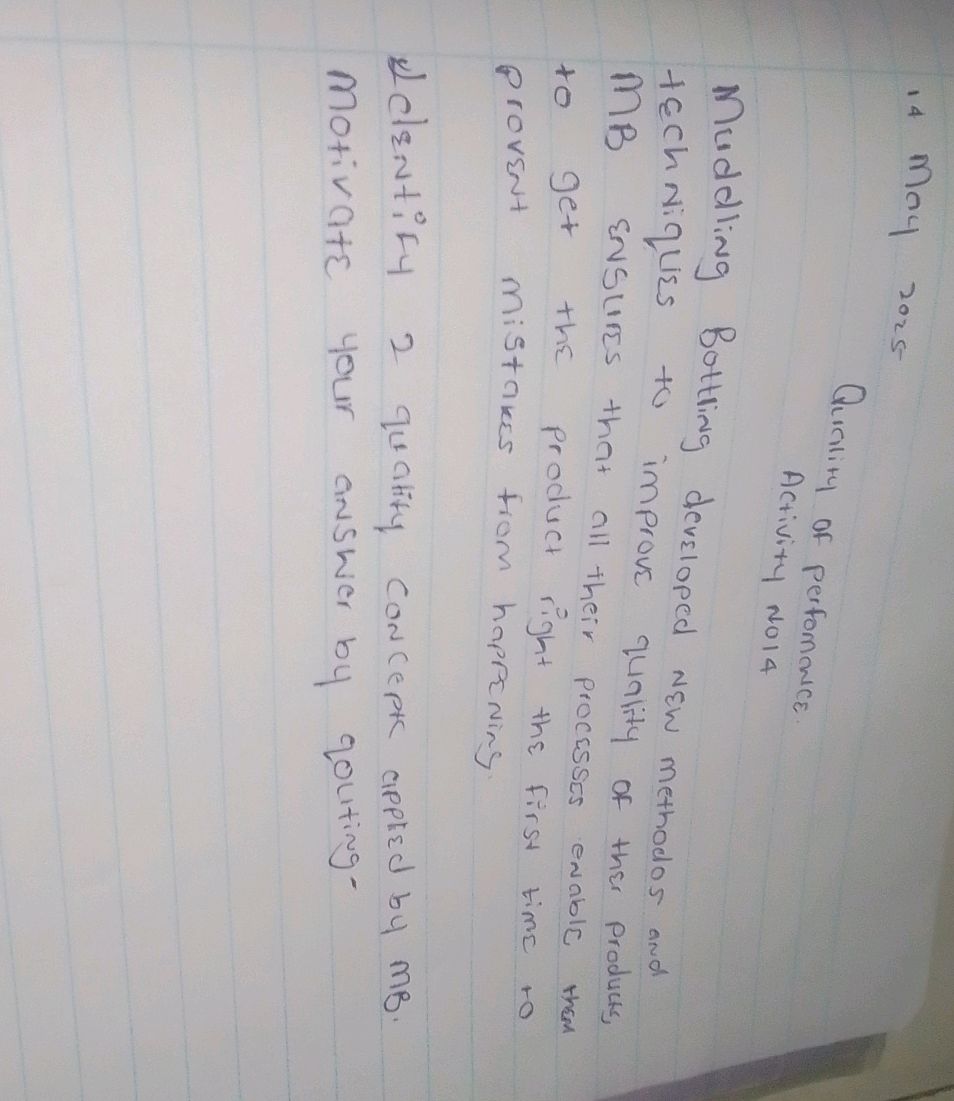 14 May 2025
Quality of perfomance.
Activity No14
Muddling Bottling developed new methodos and
techniques to improve quality of ther products,
MB ensures that all their processes enable them
to get the product right the first time to
provent mistakes from happening.
Identify 2 quality concept applied by MB.
Motivate your answer by qouting-